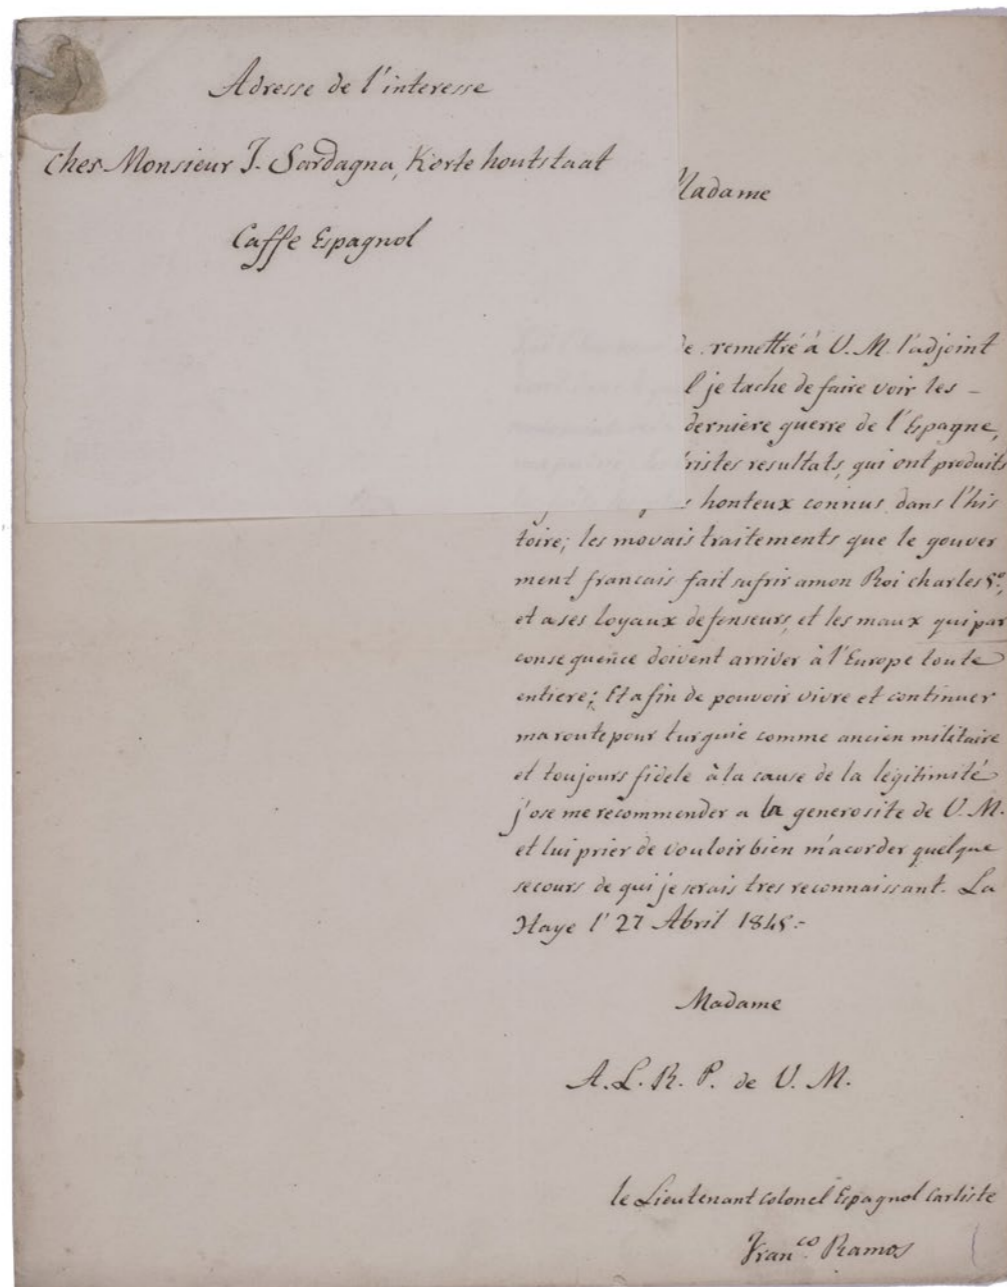 Adresse de l'interesse
Ches Monsieur J. Sardagna, Korte houtstaat
Caffe Espagnol
Madame
de remettre à V. M. l'adjoint
l je tache de faire voir les -
derniere guerre de l'Espagne,
tristes resultats, qui ont produits
honteux connus dans l'his
toire; les movais traitements que le gouver
ment francais fait sufrir a mon Roi charles 5º,
et a ses loyaux defenseurs, et les maux qui par
consequence doivent arriver à l'Europe toute
entiere; Et afin de pouvoir vivre et continuer
ma route pour turquie comme ancien militaire
et toujours fidele à la cause de la légitimité
j'ose me recommender a la generosite de V. M.
et lui prier de vouloir bien m'acorder quelque
secours de qui je serais tres reconnaissant. La
Haye l' 27 Abril 1845.-
Madame
A. L. R. P. de V. M.
le Lieutenant colonel Espagnol Carliste
Franco. Ramos